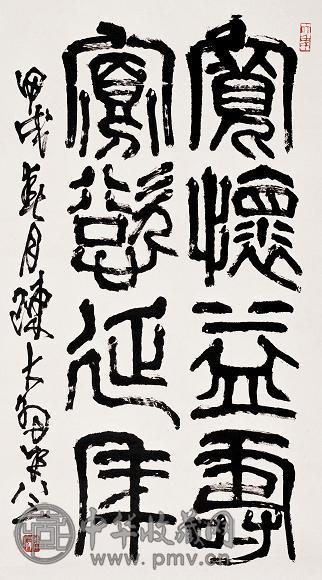 寬懷益壽
寡慾延年
甲戌春月陳大羽年八三
中华收藏网
www.pmv.cn